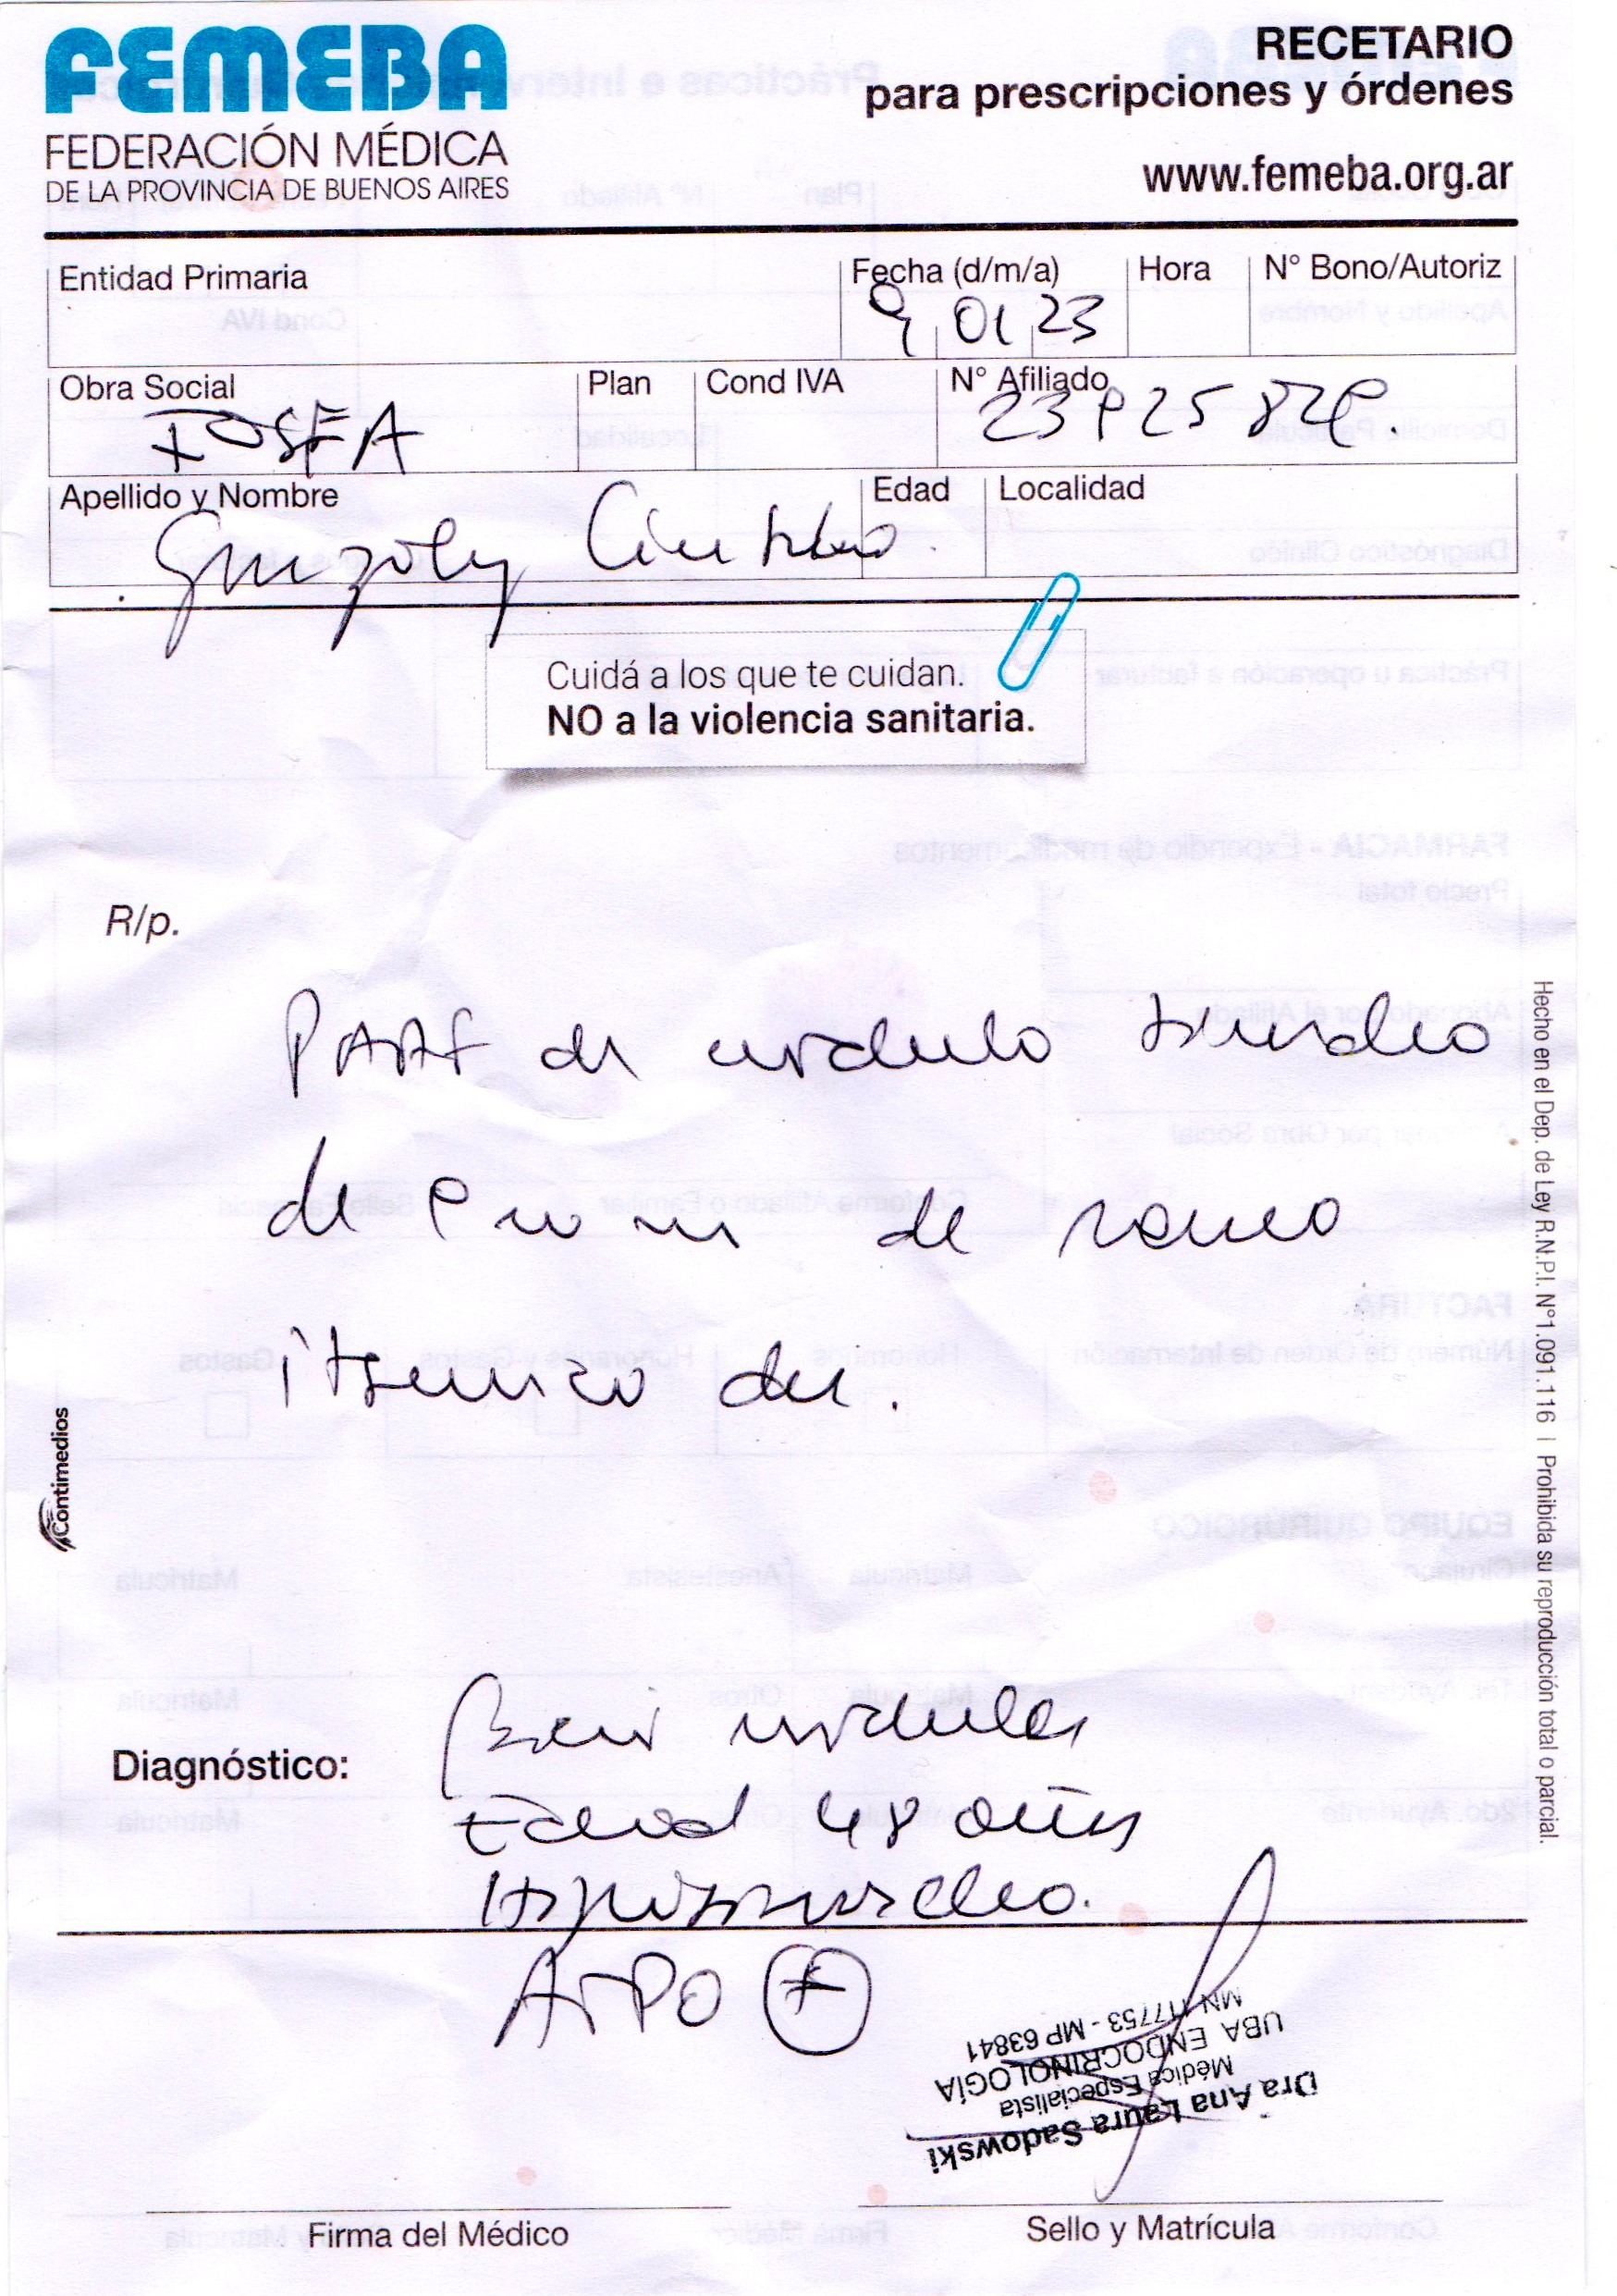 FEMEBA
FEDERACIÓN MÉDICA
DE LA PROVINCIA DE BUENOS AIRES
RECETARIO
para prescripciones y órdenes
www.femeba.org.ar
Entidad Primaria
Fecha (d/m/a)
9 01 23
Hora
N° Bono/Autoriz
Obra Social
IOSFA
Plan
Cond IVA
N° Afiliado
Apellido y Nombre
Edad
Localidad
Cuidá a los que te cuidan.
NO a la violencia sanitaria.
R/p.
PAAF de nodulo tiroideo
de mm de
itsmico
Diagnóstico:
Bocio nodular
Edad 48 años
Hipotiroideo.
ATPO +
Dra Ana Laura Sadowski
Médica Especialista
UBA ENDOCRINOLOGÍA
MN 117753 - MP 63841
Firma del Médico
Sello y Matrícula
Contimedios
Hecho en el Dep. de Ley R.N.P.I. N°1.091.116 | Prohibida su reproducción total o parcial.